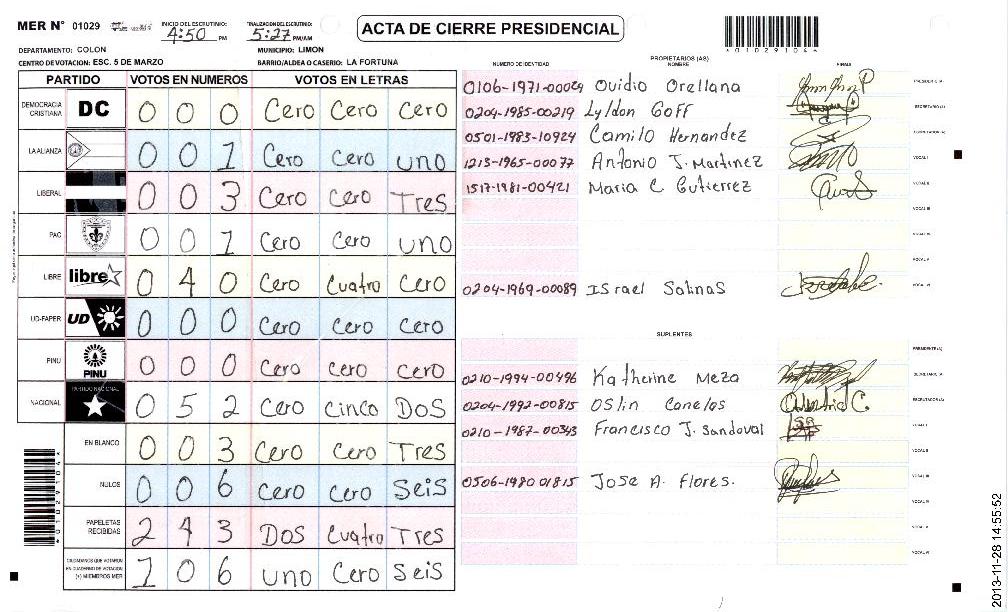 MER N° 01029
INICIO DEL ESCRUTINIO: 4:50 PM
FINALIZACION DEL ESCRUTINIO: 5:27 PM/AM
ACTA DE CIERRE PRESIDENCIAL
*01029104*
DEPARTAMENTO: COLON
MUNICIPIO: LIMON
CENTRO DE VOTACION: ESC. 5 DE MARZO
BARRIO/ALDEA O CASERIO: LA FORTUNA
PARTIDO VOTOS EN NUMEROS VOTOS EN LETRAS
DEMOCRACIA CRISTIANA DC 0 0 0 Cero Cero Cero
LA ALIANZA 0 0 1 Cero Cero uno
LIBERAL 0 0 3 Cero Cero Tres
PAC 0 0 1 Cero Cero uno
LIBRE libre 0 4 0 Cero Cuatro Cero
UD-FAPER UD 0 0 0 Cero Cero Cero
PINU PINU 0 0 0 Cero Cero Cero
NACIONAL PARTIDO NACIONAL 0 5 2 Cero Cinco DOS
EN BLANCO 0 0 3 Cero Cero Tres
NULOS 0 0 6 Cero Cero Seis
PAPELETAS RECIBIDAS 2 4 3 DOS Cuatro Tres
CIUDADANOS QUE VOTARON EN CUADERNO DE VOTACION (+) MIEMBROS MER 1 0 6 uno Cero Seis
NUMERO DE IDENTIDAD
PROPIETARIOS (AS)
NOMBRE
FIRMAS
0106-1971-00029 Ovidio Orellana PRESIDENTE (A)
0204-1985-00219 Lyldon Goff SECRETARIO (A)
0501-1983-10924 Camilo Hernandez ESCRUTADOR (A)
1213-1965-00077 Antonio J. Martinez VOCAL I
1517-1981-00421 Maria C Gutierrez VOCAL II
VOCAL III
VOCAL IV
VOCAL V
0204-1969-00089 Israel Salinas VOCAL VI
SUPLENTES
PRESIDENTE (A)
0210-1994-00496 Katherine Meza SECRETARIO (A)
0204-1992-00815 Oslin Canelas ESCRUTADOR (A)
0210-1987-00343 Francisco J. Sandoval VOCAL I
VOCAL II
0506-1980 01815 Jose A. Flores. VOCAL III
VOCAL IV
VOCAL V
VOCAL VI
*01029104*
2013-11-28 14:55:52